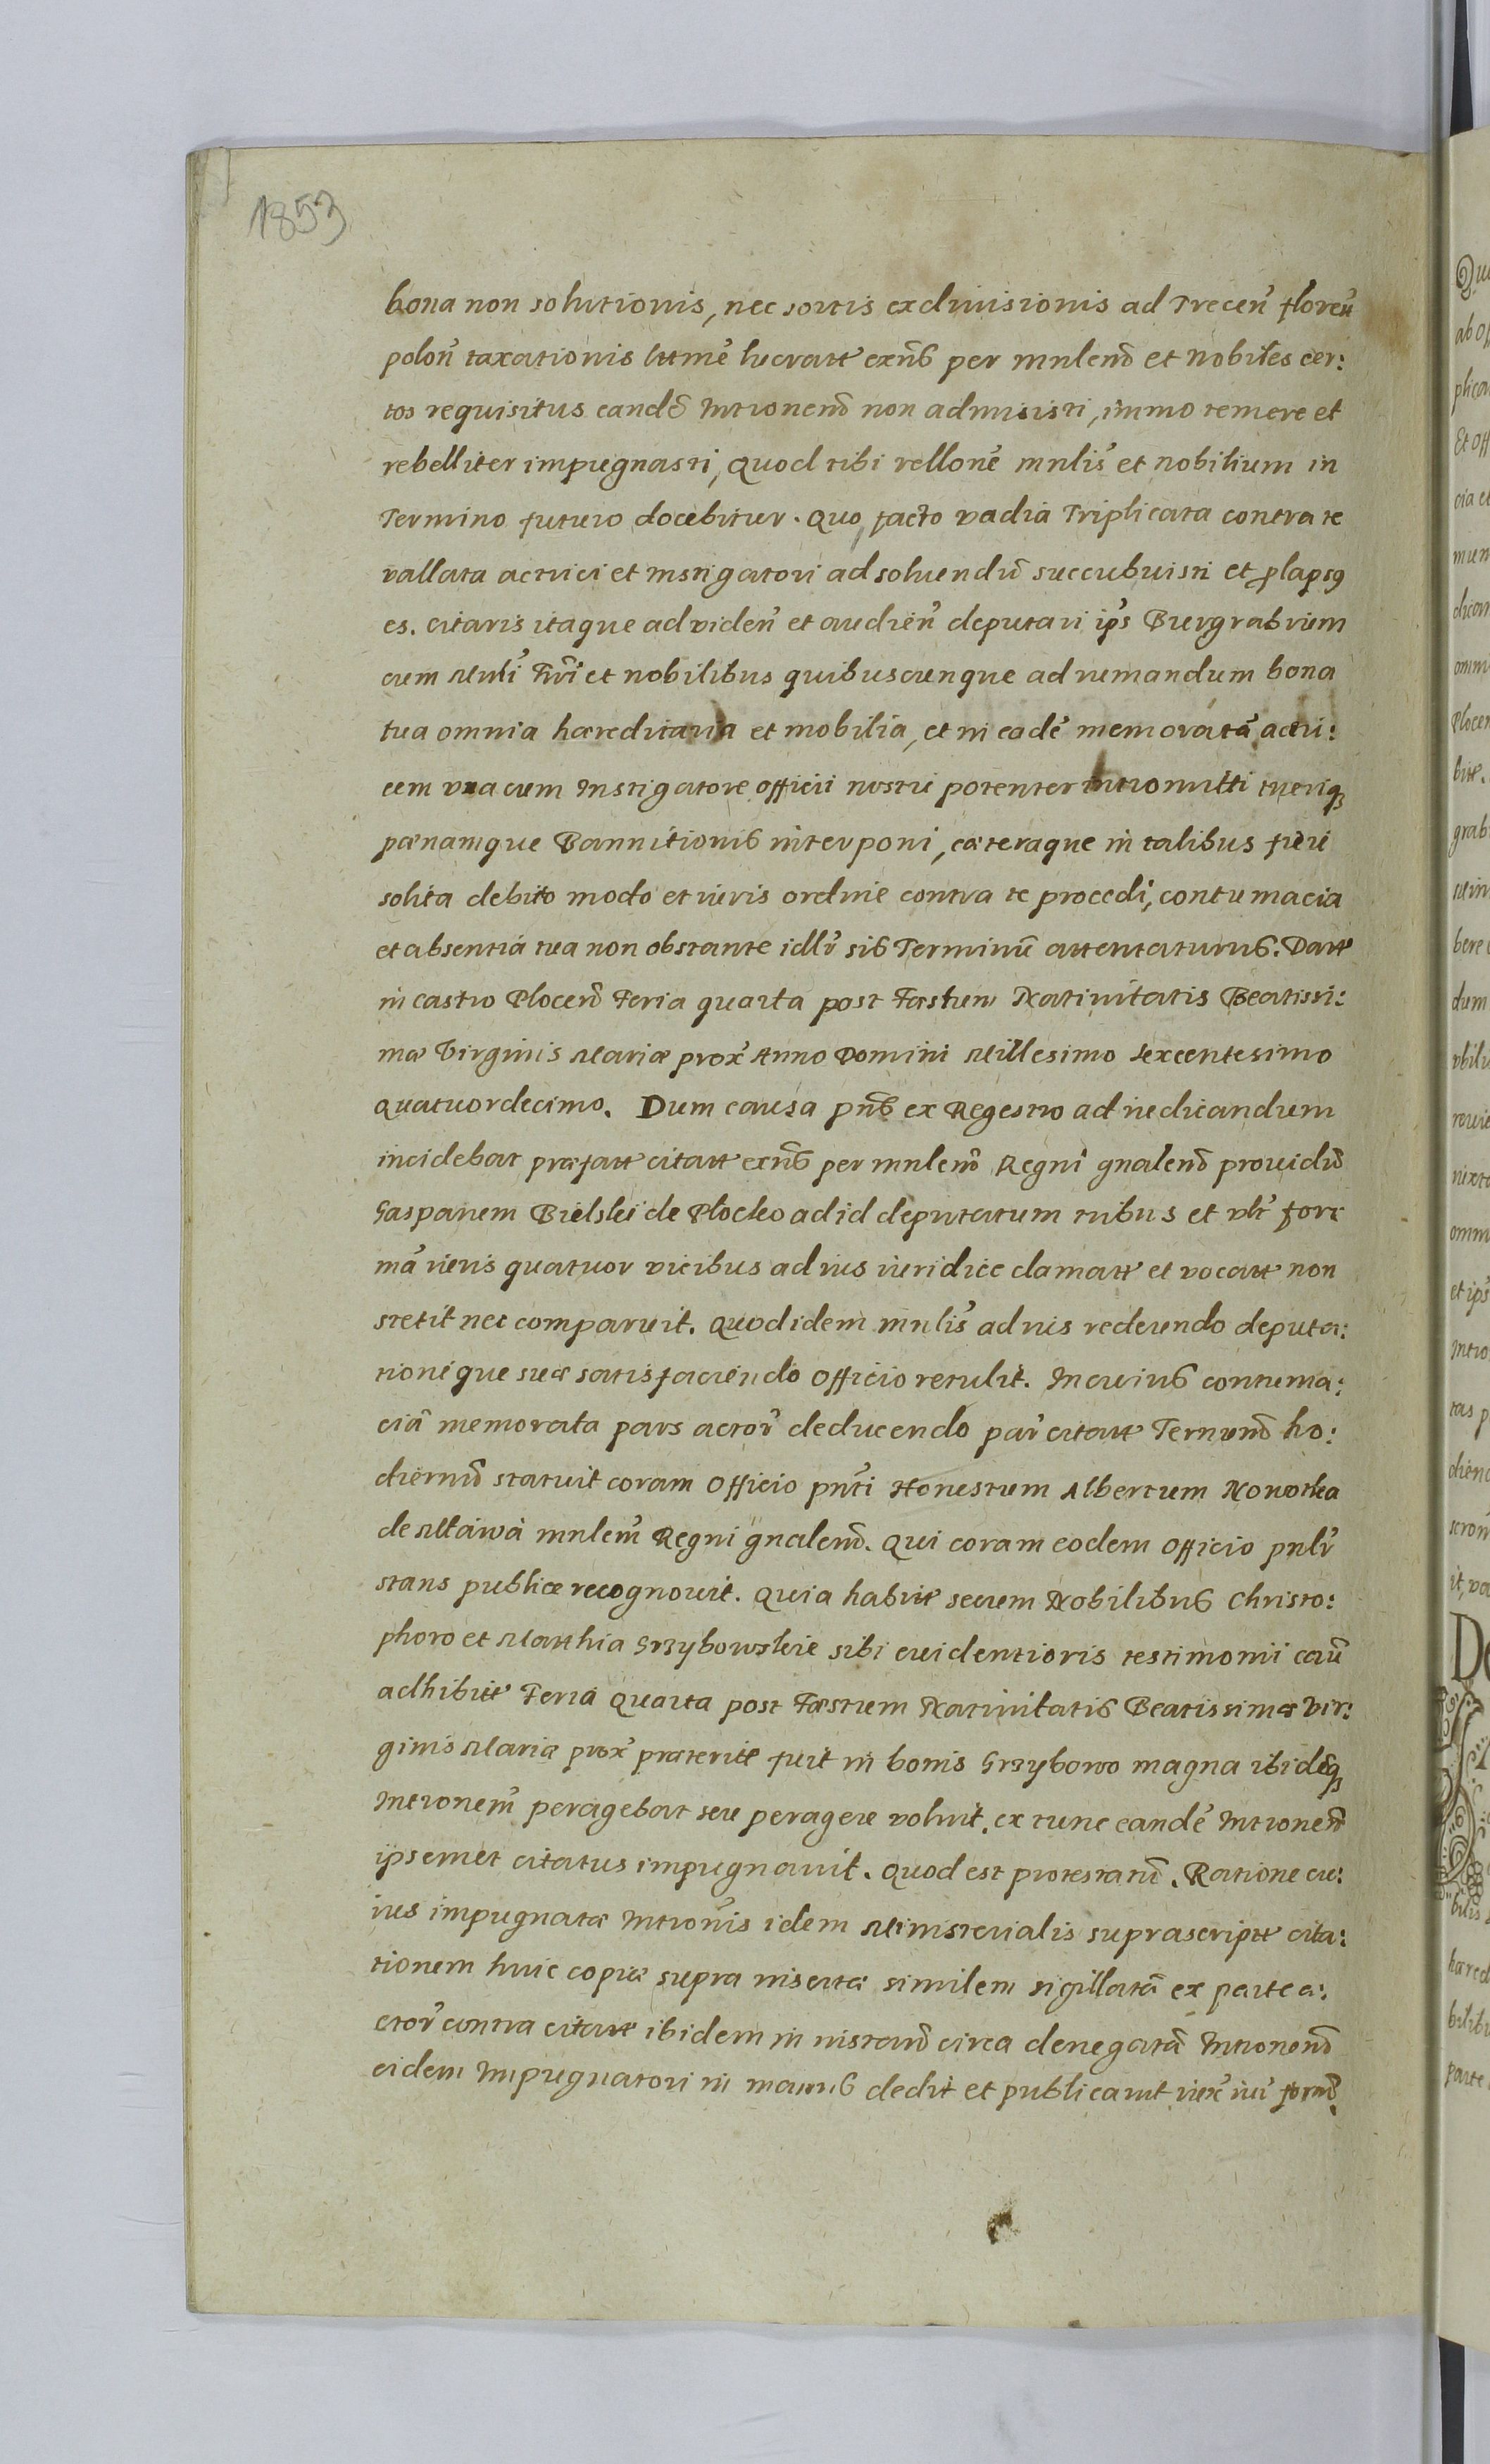 1853
bona non solutionis, nec sortis ex diuisionis ad Trecen̄ floren̄
polon̄ taxationis litme̅ lucratt exn̄s per mnlem̄ et nobiles cer:
tos requisitus eande̅ Intionem̄ non admisisti, immo temere et
rebelliter impugnasti, quod tibi rellone̅ mnlis̄ et nobilium in
Termino futuro docebitur. Quo facto vadia Triplicata contra te
vallata actrici et Instigatori ad soluendu̅ succubuisti et ꝑlapsꝰ
es. Citaris itaque ad viden̄ et audien̄ deputari ip̄s Burgrabium
cum Mnli̅ Trr̄i et nobilibus quibuscunque ad numandum bona
tua omnia hæreditaria et mobilia, et in eade̅ memorata̅ actri:
cem vna cum Instigatore officii nostri potenter intromitti tueriqꝫ
pænamque Bannitionis interponi, cæteraque in talibus fieri
solita debito modo et iuris ordine contra te procedi, contumacia
et absentiá tua non obstante idlr̄ sis Terminu̅ attentaturus. Datt
in castro Plocen̄ Feria quarta post Fæstum Natiuitatis Beatissi:
mæ Virginis Mariæ prox̄ Anno Domini Millesimo sexcentesimo
quatuordecimo. Dum causa pn̄s ex Regestro ad iudicandum
incidebat præfatt citatt exn̄s per mnlem̄ Regni gnalem̄ prouidu̅
Gasparem Bielski de Plocko ad id deputatum tribus et vlt̄ for:
ma̅ iuris quatuor vicibus ad ius iuridicè clamatt et vocatt non
stetit nec comparuit. Quod idem mnlis̄ ad nis redeundo deputa:
tionique suæ satisfaciendo Officio retulit. In cuius contuma:
cia̅ memorata pars actor̄ deducendo par̄ citatt Termin̄ ho:
diernu̅ statuit coram Officio pn̄ti Honestum Albertum Nowotka
de Mława mnlem̄ Regni gnalem̄. Qui coram eodem Officio pnlr̄
stans publicæ recognouit. Quia habitt secum Nobilibus Christo:
phoro et Matthia Grzybowskie sibi euidentioris testimonii cau̅
adhibitt Feria Quarta post Fæstum Natiuitatis Beatissimæ Vir:
ginis Maria prox̄ præteritt fuit in bonis Grzybowo magna ibideqꝫ
Intionem̄ peragebat seu peragere voluit, ex tunc eande̅ Intionem̄
ipsemet citatus impugnauit. Quod est protestatu̅. Ratione cu:
ius impugnatæ Intionis̄ idem Ministerialis suprascriptt cita:
tionem huic copiæ supra insertæ similem sigillata̅ ex parte a:
ctor̄ contra citatt ibidem in instan̄ circa denegata̅ Intionem̄
eidem Impugnatori in manus dedit et publicauit iux̄ iur̄ form̄.